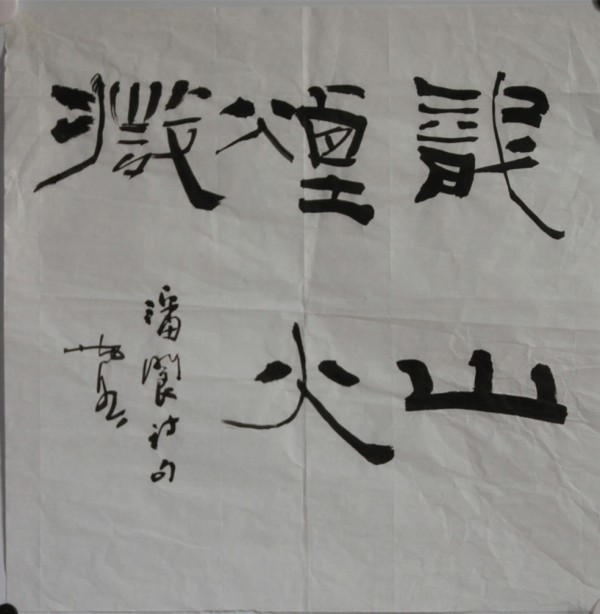 龍山
煙火
微
潘閬詩句